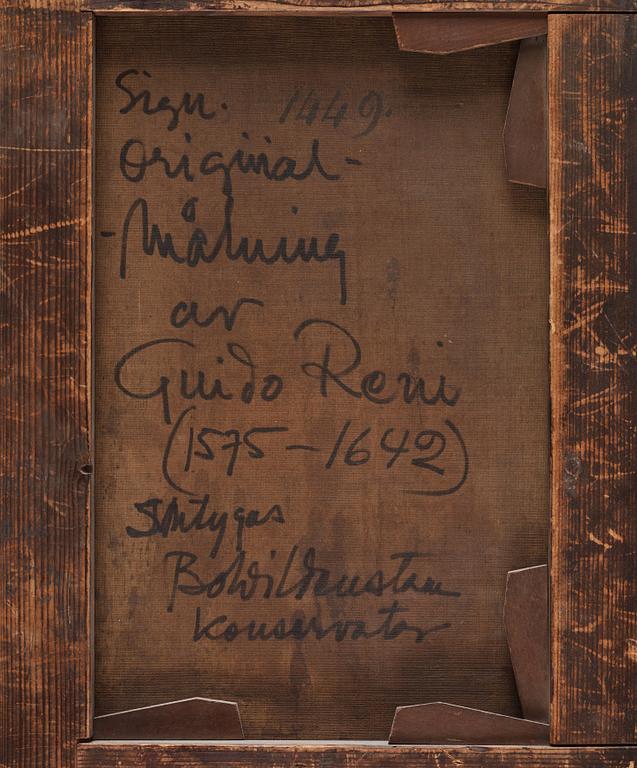 Sign. 1449.
Original-
-Målning
av
Guido Reni
(1575-1642)
Intygas
Bo Wildenstam
konservator